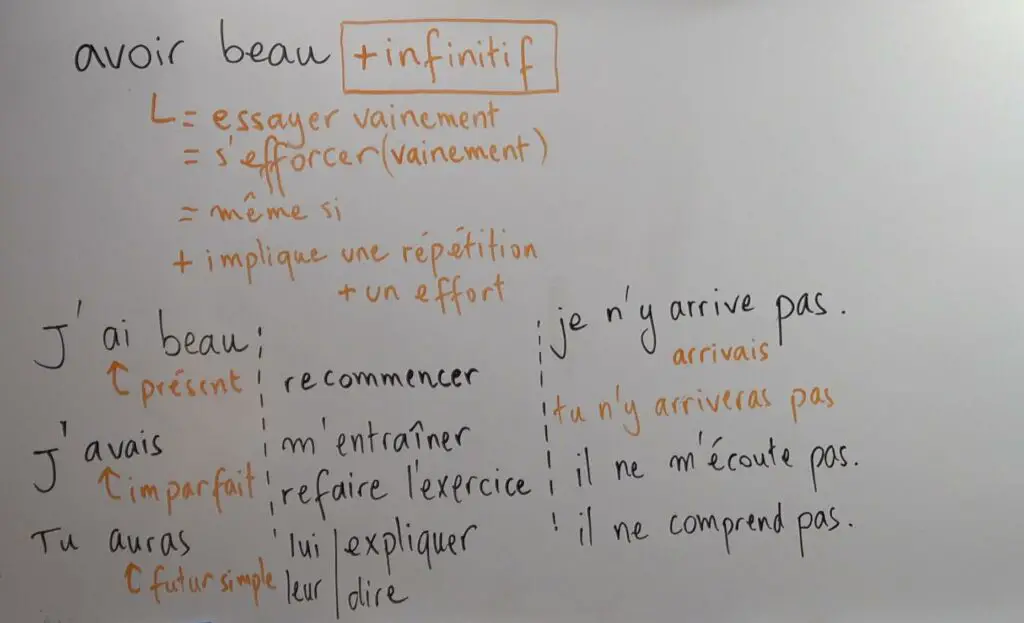 avoir beau +infinitif
= essayer vainement
= s'efforcer (vainement)
= même si
+ implique une répétition
+ un effort
J'ai beau
↑ présent
J'avais
↑ imparfait
Tu auras
↑ futur simple
recommencer
m'entraîner
refaire l'exercice
lui | expliquer
leur | dire
je n'y arrive pas.
arrivais
tu n'y arriveras pas
il ne m'écoute pas.
il ne comprend pas.